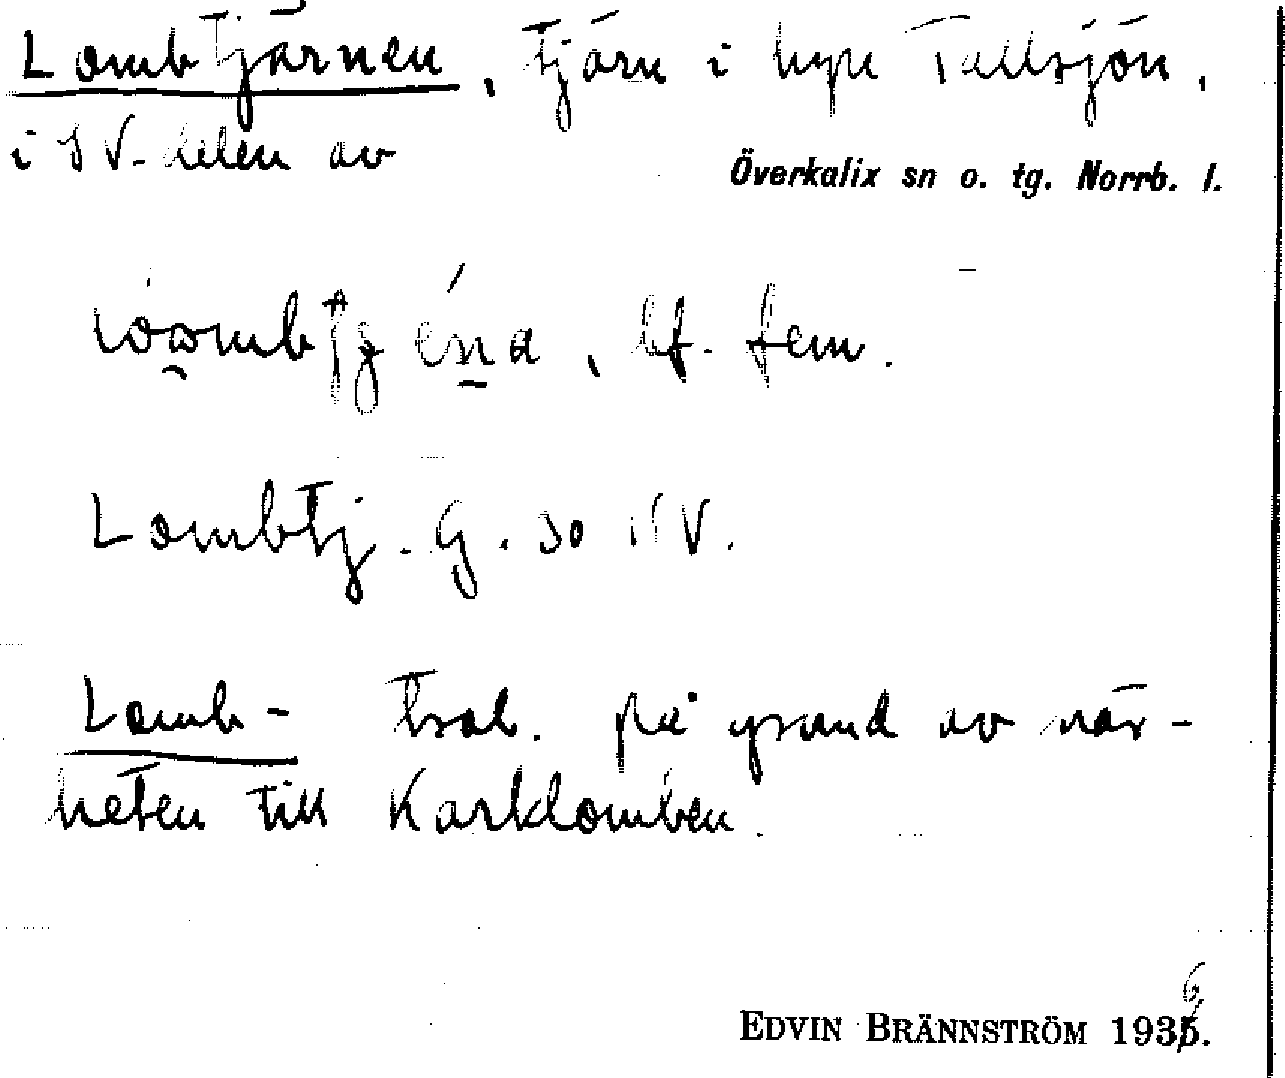 Lombtjärnen, tjärn i byn Tallsjön,
i SV-delen av
Överkalix sn o. tg. Norrb. l.
bf. fem.
Lombtj. G. 30 i V.
Lomb- trol. på grund av när-
heten till Karklomben.
EDVIN BRÄNNSTRÖM 1936.